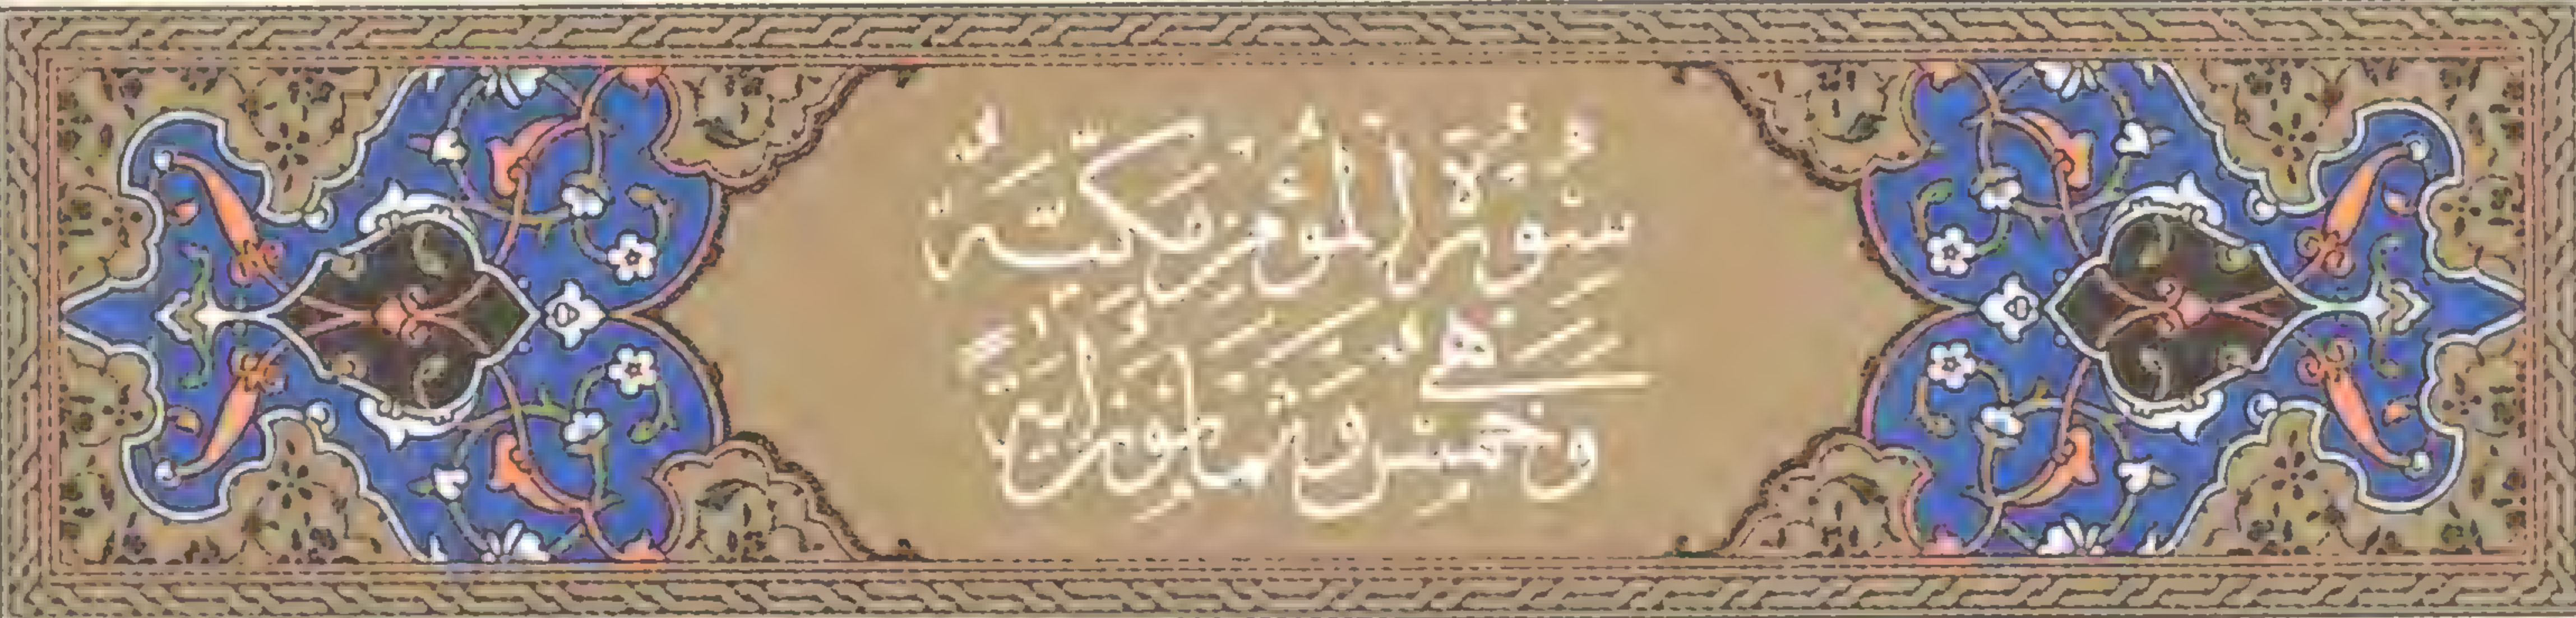 سُورَةُ الْمُؤْمِنِ مَكِّيَّةٌ
وَهِيَ خَمْسٌ وَثَمَانُونَ آيَةً